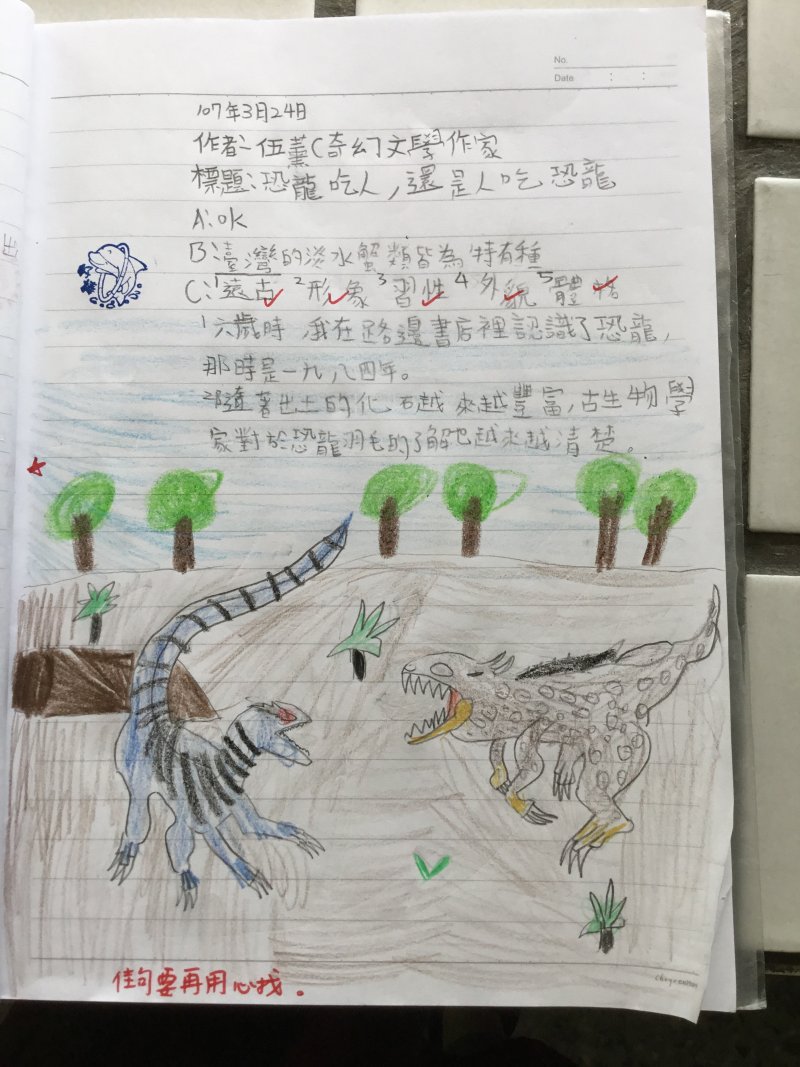 No.
Date : :
107年3月24日
作者-伍薰(奇幻文學作家
標題:恐龍吃人,還是人吃恐龍
A:ok
B:臺灣的淡水蟹類皆為特有種
C:1遠古 2形象 3習性 4外貌 5體格
1六歲時 我在路邊書店裡認識了恐龍,
那時是一九八四年。
2隨著出土的化石越來越豐富,古生物學
家對於恐龍羽毛的了解也越來越清楚。
佳句要再用心找。